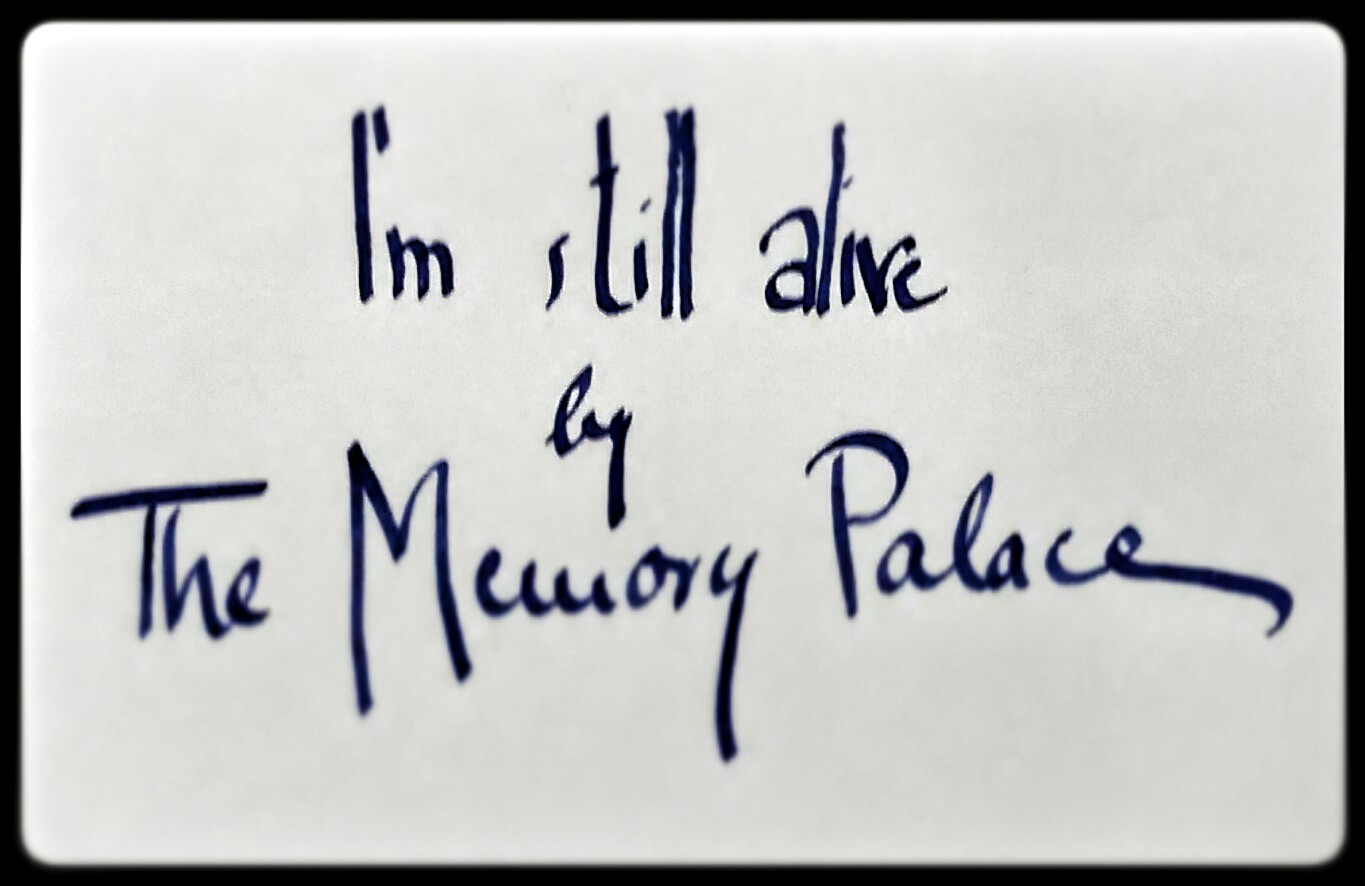 I'm still alive
by
The Memory Palace